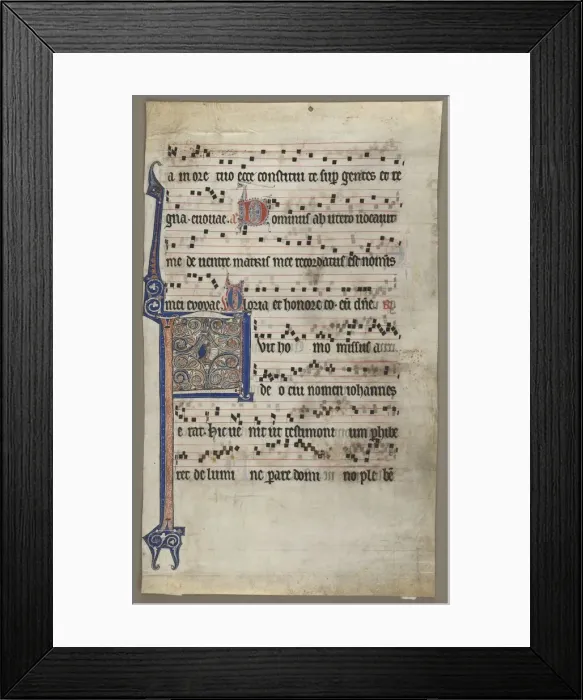 a in ore tuo ecce constitui te sup gentes et re
gna. euouae. a Dominus ab utero uocauit
me de uentre matris mee recordatus est nominis
mei euouae Gloria et honore co. eū dn̄e.
uit ho mo missus a
de o cui nomen iohannes
e rat. hic ue nit ut testimoni um phibe
ret de lumi ne pare domi no ple bē